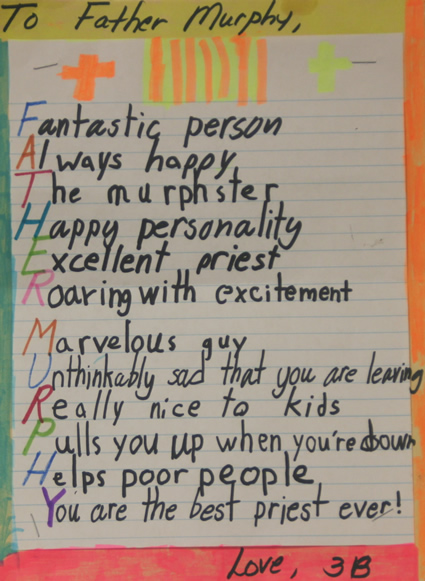 To Father Murphy,
Fantastic person
Always happy
The murphster
Happy personality
Excellent priest
Roaring with excitement
Marvelous guy
Unthinkably sad that you are leaving
Really nice to kids
Pulls you up when you're down
Helps poor people
You are the best priest ever!
Love, 3B